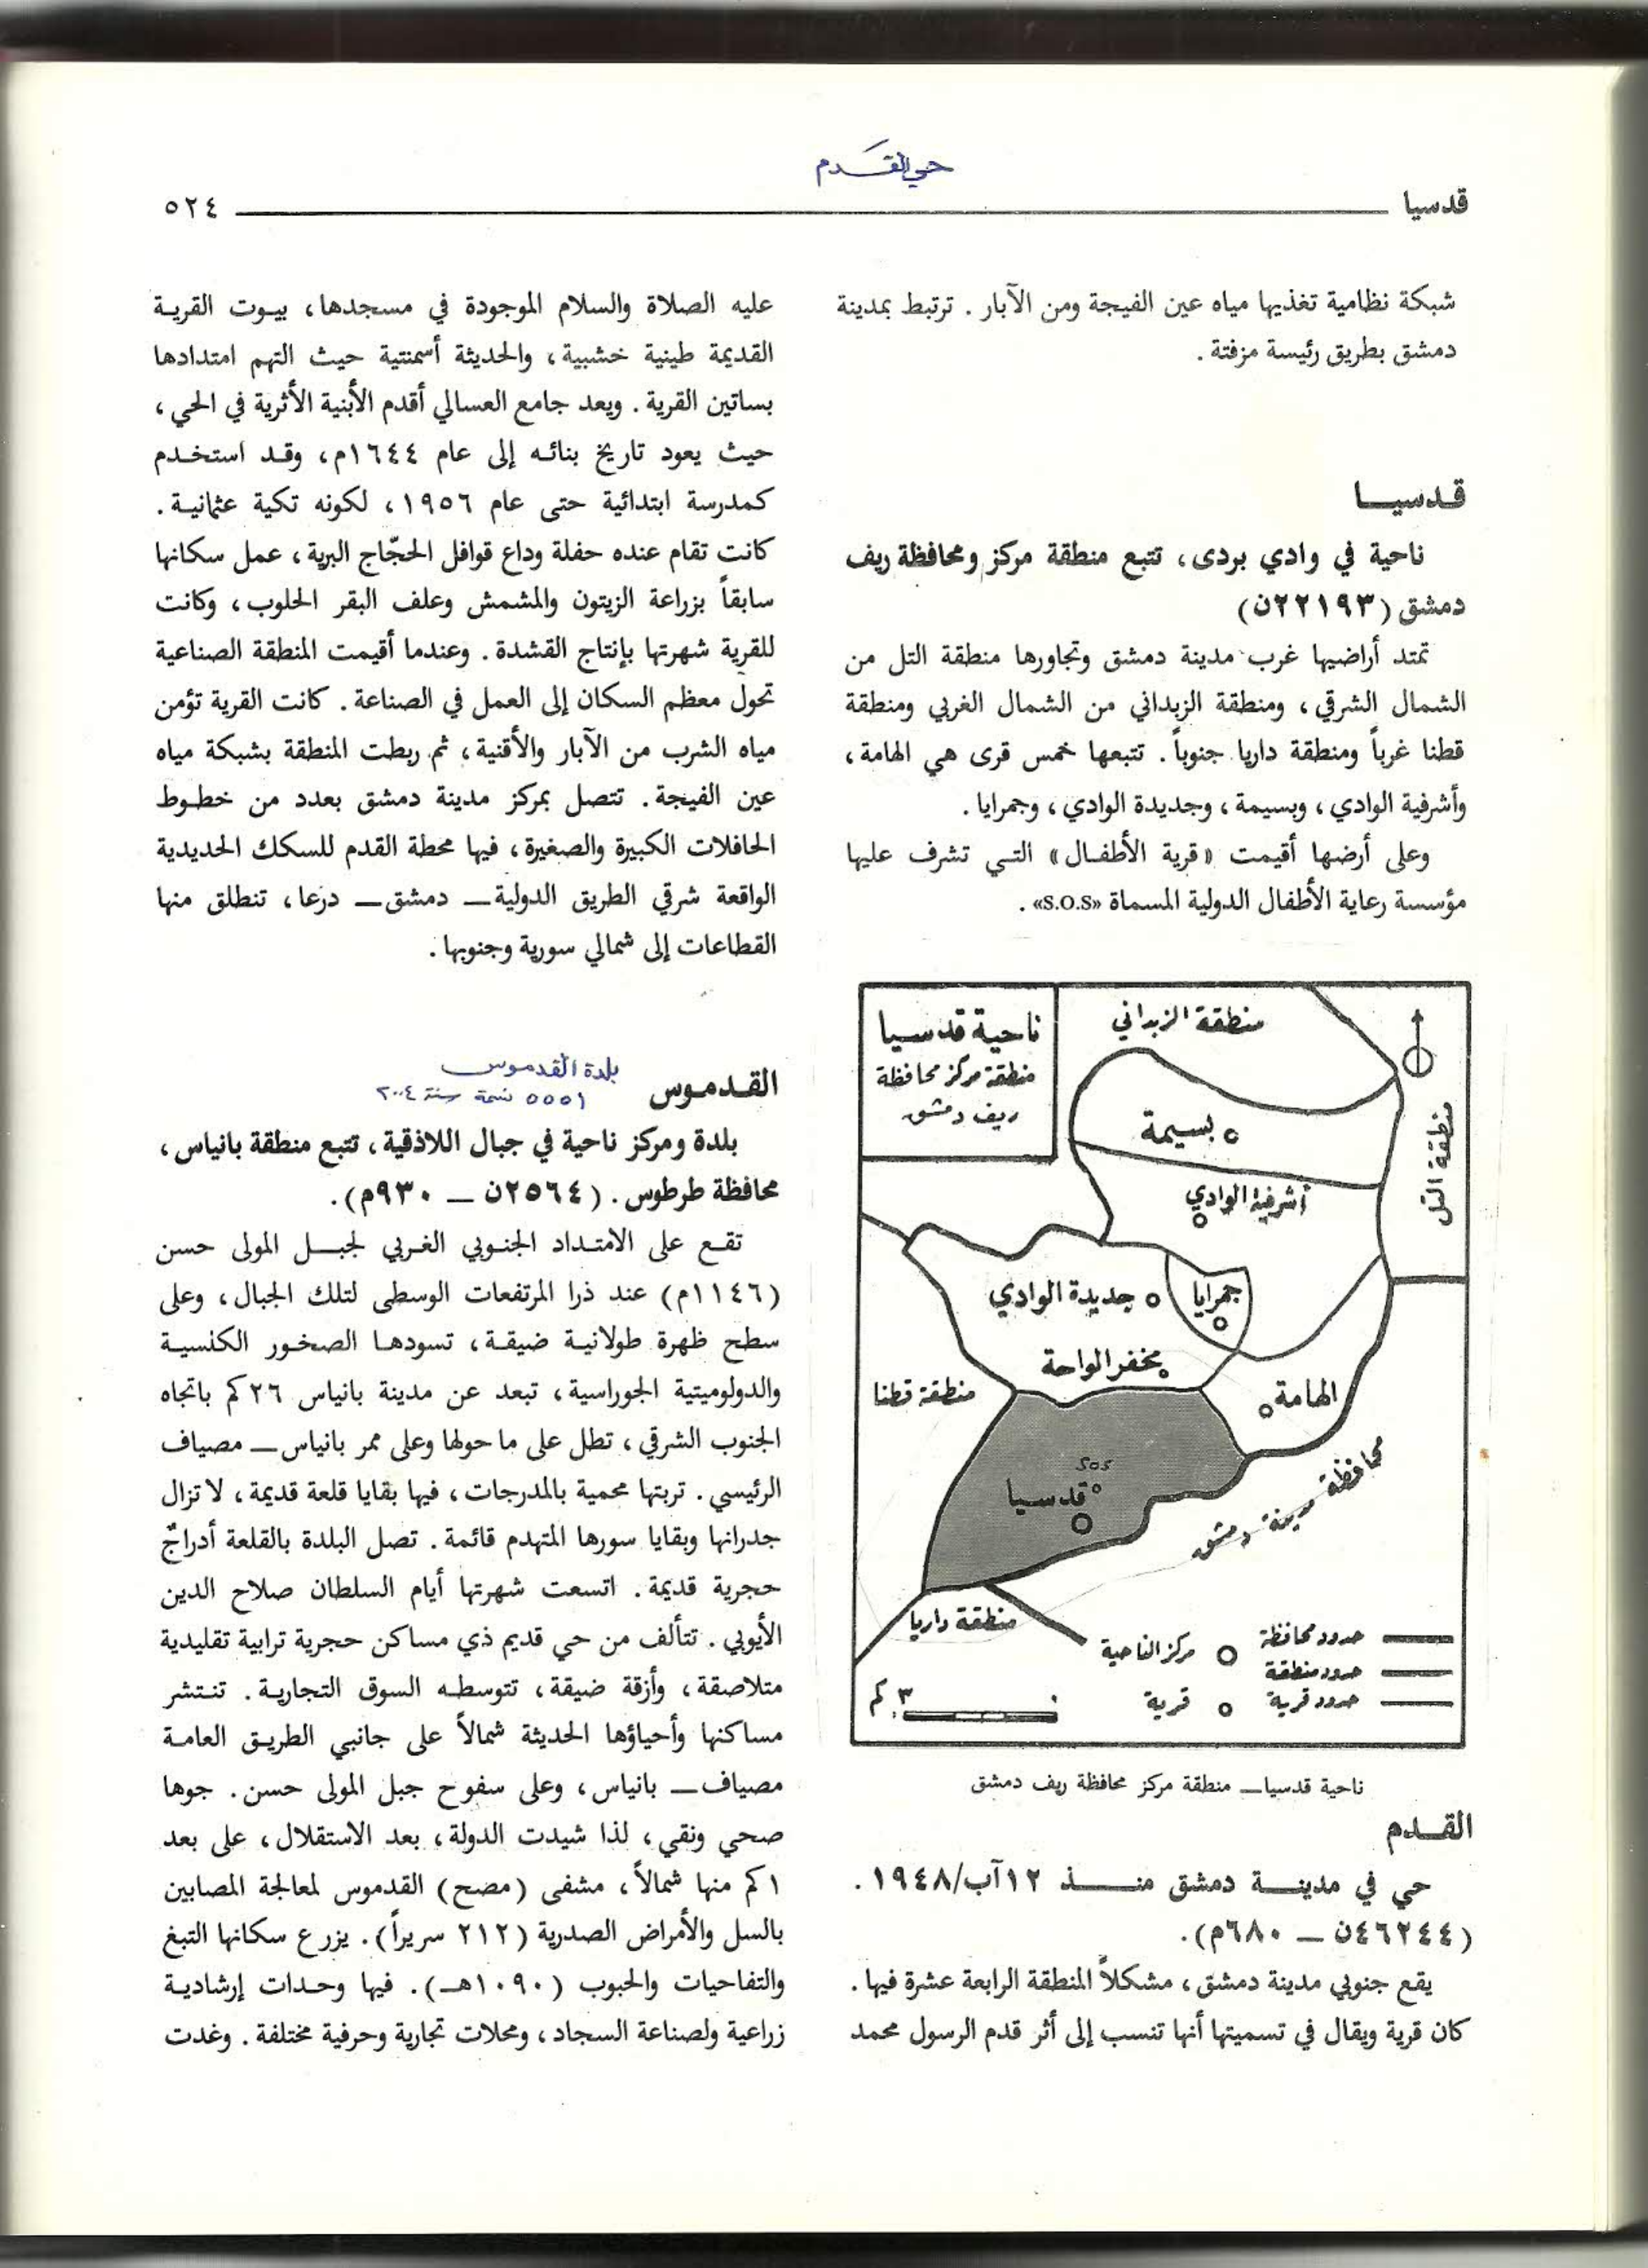 حي القَدم
قدسيا ٥٢٤
شبكة نظامية تغذيها مياه عين الفيجة ومن الآبار . ترتبط بمدينة
دمشق بطريق رئيسة مزفتة .
قدسيــا
ناحية في وادي بردى، تتبع منطقة مركز ومحافظة ريف
دمشق (٢٢١٩٣ن)
تمتد أراضيها غرب مدينة دمشق وتجاورها منطقة التل من
الشمال الشرقي، ومنطقة الزبداني من الشمال الغربي ومنطقة
قطنا غرباً ومنطقة داريا جنوباً. تتبعها خمس قرى هي الهامة،
وأشرفية الوادي، وبسيمة، وجديدة الوادي، وجمرايا.
وعلى أرضها أقيمت «قرية الأطفـال» التـي تشرف عليها
مؤسسة رعاية الأطفال الدولية المسماة «S.O.S» .
ناحية قدسيا
منطقة مركز محافظة
ريف دمشق
منطقة الزبداني
منطقة التل
بسيمة
أشرفية الوادي
جمرايا
جديدة الوادي
مخفر الواحة
الهامة
منطقة قطنا
SOS
قدسيا
محافظة مدينة دمشق
منطقة داريا
حدود محافظة
حدود منطقة
حدود قرية
مركز الناحية
قرية
٠ ٣ كم
ناحية قدسيا_ منطقة مركز محافظة ريف دمشق
القـدم
حي في مدينــة دمشق منــــذ ١٢آب/١٩٤٨.
(٤٦٢٤٤ن _ ٦٨٠م).
يقع جنوبي مدينة دمشق، مشكلاً المنطقة الرابعة عشرة فيها.
كان قرية ويقال في تسميتها أنها تنسب إلى أثر قدم الرسول محمد
عليه الصلاة والسلام الموجودة في مسجدها، بيـوت القريـة
القديمة طينية خشبية، والحديثة أسمنتية حيث التهم امتدادها
بساتين القرية. ويعد جامع العسالي أقدم الأبنية الأثرية في الحي،
حيث يعود تاريخ بنائـه إلى عام ١٦٤٤م، وقـد استخـدم
كمدرسة ابتدائية حتى عام ١٩٥٦، لكونه تكية عثمانيـة.
كانت تقام عنده حفلة وداع قوافل الحجّاج البرية، عمل سكانها
سابقاً بزراعة الزيتون والمشمش وعلف البقر الحلوب، وكانت
للقرية شهرتها بإنتاج القشدة. وعندما أقيمت المنطقة الصناعية
تحول معظم السكان إلى العمل في الصناعة. كانت القرية تؤمن
مياه الشرب من الآبار والأقنية، ثم ربطت المنطقة بشبكة مياه
عين الفيجة. تتصل بمركز مدينة دمشق بعدد من خطـوط
الحافلات الكبيرة والصغيرة، فيها محطة القدم للسكك الحديدية
الواقعة شرقي الطريق الدولية_ دمشق_ درعا، تنطلق منها
القطاعات إلى شمالي سورية وجنوبها.
القـدمـوس
بلدة القدموس
٥٥٥١ نسمة سنة ٢٠٠٤
بلدة ومركز ناحية في جبال اللاذقية، تتبع منطقة بانياس،
محافظة طرطوس. (٢٥٦٤ن _ ٩٣٠م).
تقـع على الامتـداد الجنـوبي الغـربي لجبـل المولى حسن
(١١٤٦م) عند ذرا المرتفعات الوسطى لتلك الجبال، وعلى
سطح ظهرة طولانيـة ضيقـة، تسودهـا الصخـور الكلسيـة
والدولوميتية الجوراسية، تبعد عن مدينة بانياس ٢٦كم باتجاه
الجنوب الشرقي، تطل على ما حولها وعلى ممر بانياس_ مصياف
الرئيسي. تربتها محمية بالمدرجات، فيها بقايا قلعة قديمة، لا تزال
جدرانها وبقايا سورها المتهدم قائمة. تصل البلدة بالقلعة أدراجٌ
حجرية قديمة. اتسعت شهرتها أيام السلطان صلاح الدين
الأيوبي. تتألف من حي قديم ذي مساكن حجرية ترابية تقليدية
متلاصقة، وأزقة ضيقة، تتوسطـه السوق التجاريـة. تنـتشر
مساكنها وأحياؤها الحديثة شمالاً على جانبي الطريـق العامـة
مصياف_ بانياس، وعلى سفوح جبل المولى حسن. جوها
صحي ونقي، لذا شيدت الدولة، بعد الاستقلال، على بعد
١كم منها شمالاً، مشفى (مصح) القدموس لمعالجة المصابين
بالسل والأمراض الصدرية (٢١٢ سريراً). يزرع سكانها التبغ
والتفاحيات والحبوب (١٠٩٠هـ). فيها وحـدات إرشاديـة
زراعية ولصناعة السجاد، ومحلات تجارية وحرفية مختلفة. وغدت